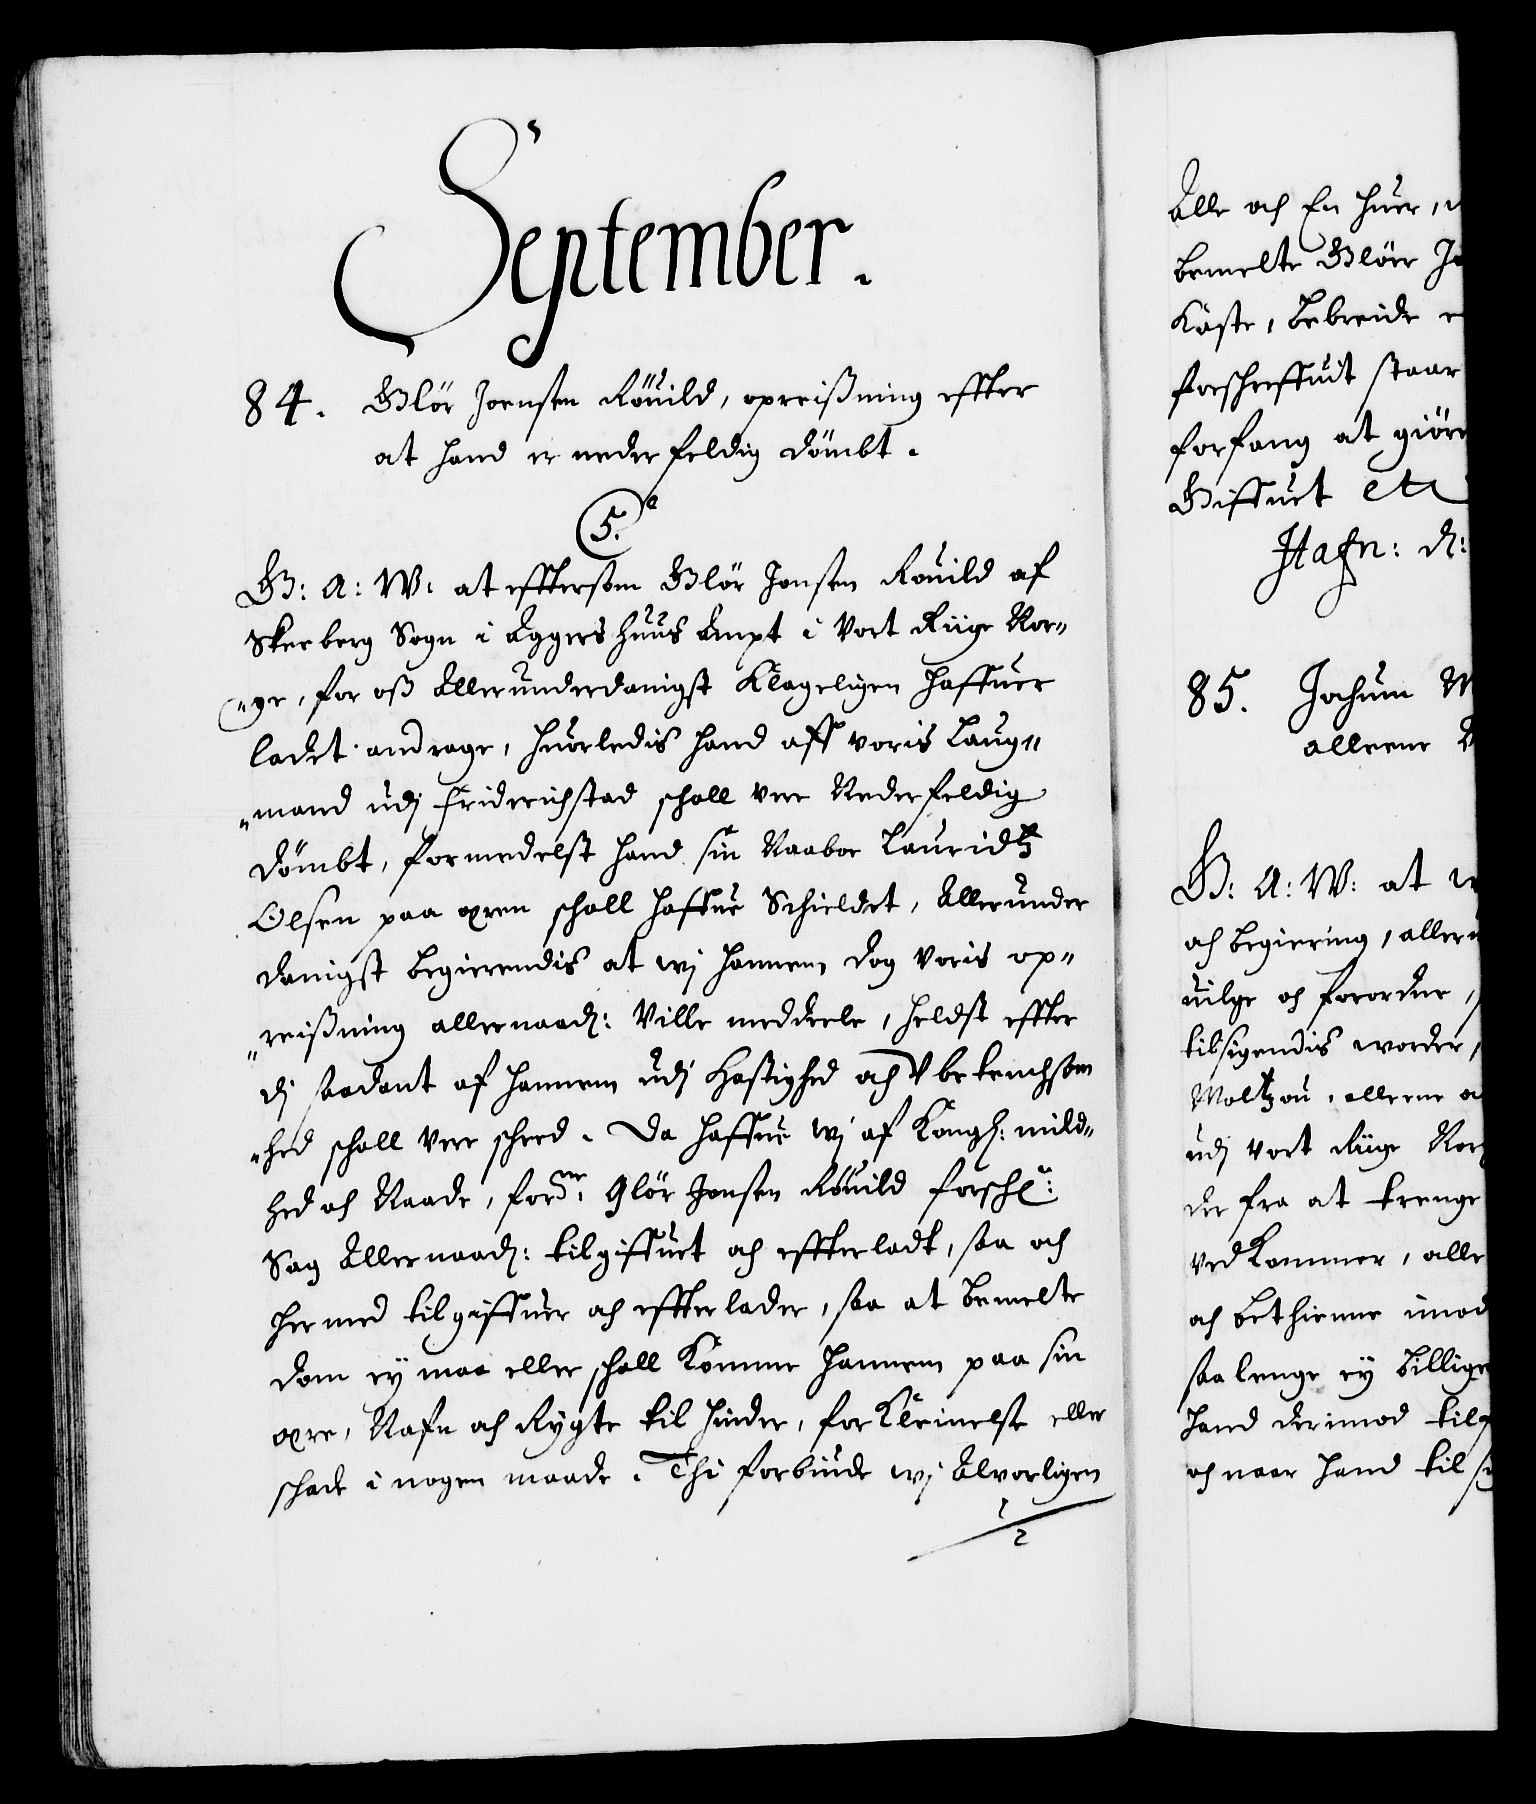 September.
84. Glör Joensen Röuild, opreißning effter
at hand er nederfeldig dömbt.
5.
G: A: W: at efftersom Glör Jonsen Rouild af
Skeeberg Sogn i Aggershuus Ampt i Vort Riige Nor„
„ge, for oß Allerunderdanigst Klageligen haffuer
ladet andrage, huorledis hand aff voris Laug„
„mand udj Friderichstad schall vere Nederfeldig
dömbt, formedelst hand sin Naaboe Lauridtz
Olsen paa æren schall haffue Schieldet, Allerunder
danigst begierendis at wj hannem dog Voris op„
„reißning allernaad: Ville meddeele, heldst effter
dj saadant af hannem udj Hastighed och Vbetenchsom
„hed schall vere scheed. Da haffue wj af Kongl: mild„
hed och Naade, forne: Glör Jonsen Röuild forschr:
Sag Allernaad: tilgiffuet och effterladt, saa och
hermed tilgiffuer och effterlader, saa at bemelte
dom ey maa eller schall Komme hannem paa sin
ære, Nafn och Rygte til hinder, forKleinelse eller
schade i nogen maade. Thi forbiude wj Alvorligen
Alle och En huer,
bemelte Glöer
Kaste, bebreide
forschreffuit staar
forfang at giöre
Giffuet etc
Hafn: d:
85. Jochum
alleene
G: A: W: at
och begiering,
uilge och forordne,
tilsigendis worder,
Moltzou, alleene
udj Vort Riige
der fra at trenge
ved Kommer, alle
och bethienne imod
saa lenge ey billige
hand derimod
och naar hand til